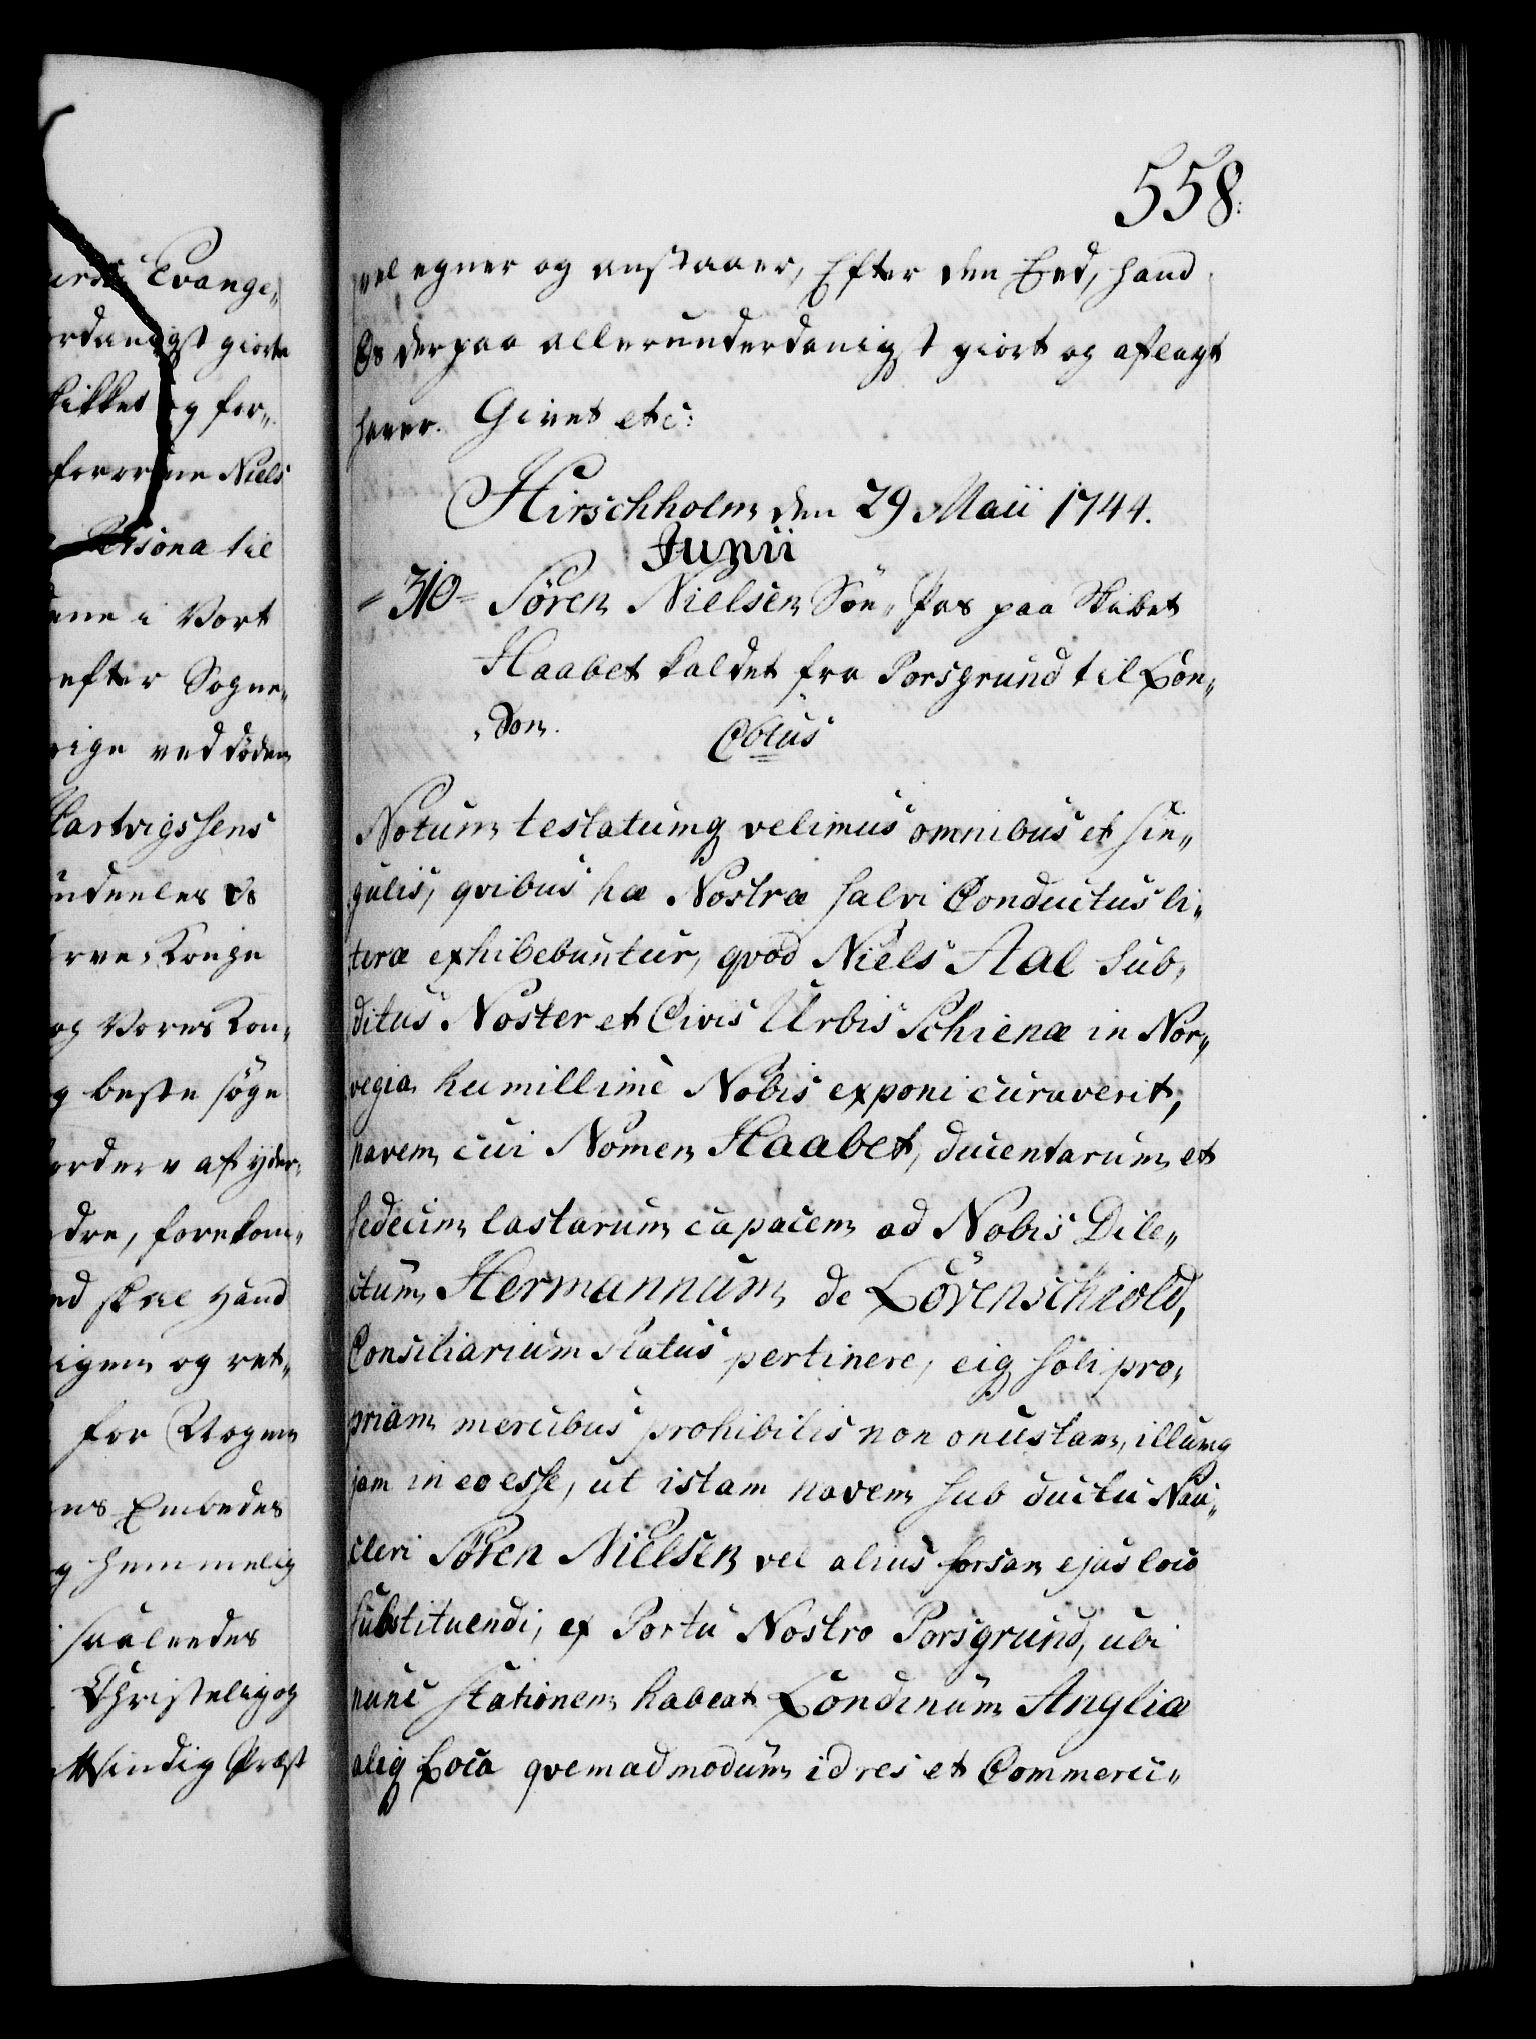 558.
vel egner og anstaaer, Efter den Eed, hand
Os derpaa allerunderdanigst giort og aflagt
haver. Givet etc:
Hirschholm den 29 Maii 1744.
Junii
= 310 = Sören Nielsen Söe-Pas paa Skibet
Haabet kaldet fra Porsgrund til Lon„
„don.
C6tus
Notum testatumq velimus omnibus et sin„
gulis, qvibus hæ Nostræ salvi Conductus li„
teræ exhibebuntur, qvod Niels Aal sub„
ditus Noster et Civis Urbis Schienæ in Nor„
vegia humillimè Nobis exponi curaverit,
navem cui Nomen Haabet, ducentarum et
sedecim lastarum capacem ad Nobis Dile„
ctum Hermannum de Lövenschiold,
Consiliarium Status pertinere, eiq soli pro„
priam mercibus prohibitis non onustam, illumq
jam in eo esse, ut istam navem sub ductu Nau„
cleri Sören Nielsen vel alius forsan ejus loco
substituendi, ex Portu Nostro Porsgrund, ubi
nunc stationem habeat Londinum Angliæ
aliaq Loca qvemadmodum id res et Commerci„
Evange„
rdanigst giorte
kikket og for„
forrvne Niels
Persona til
ene i Vort
efter Sogne„
rige ved döden
Hartvigssens
ndeeles Os
rve-Konge
og Vores Kon„
g beste söge
orderv af yder„
dre, forekom„
ed skal hand
igen og ret„
for Vogen
ns Embedes
g hemmelig
saaledes
Christelig og
tsindig Præst